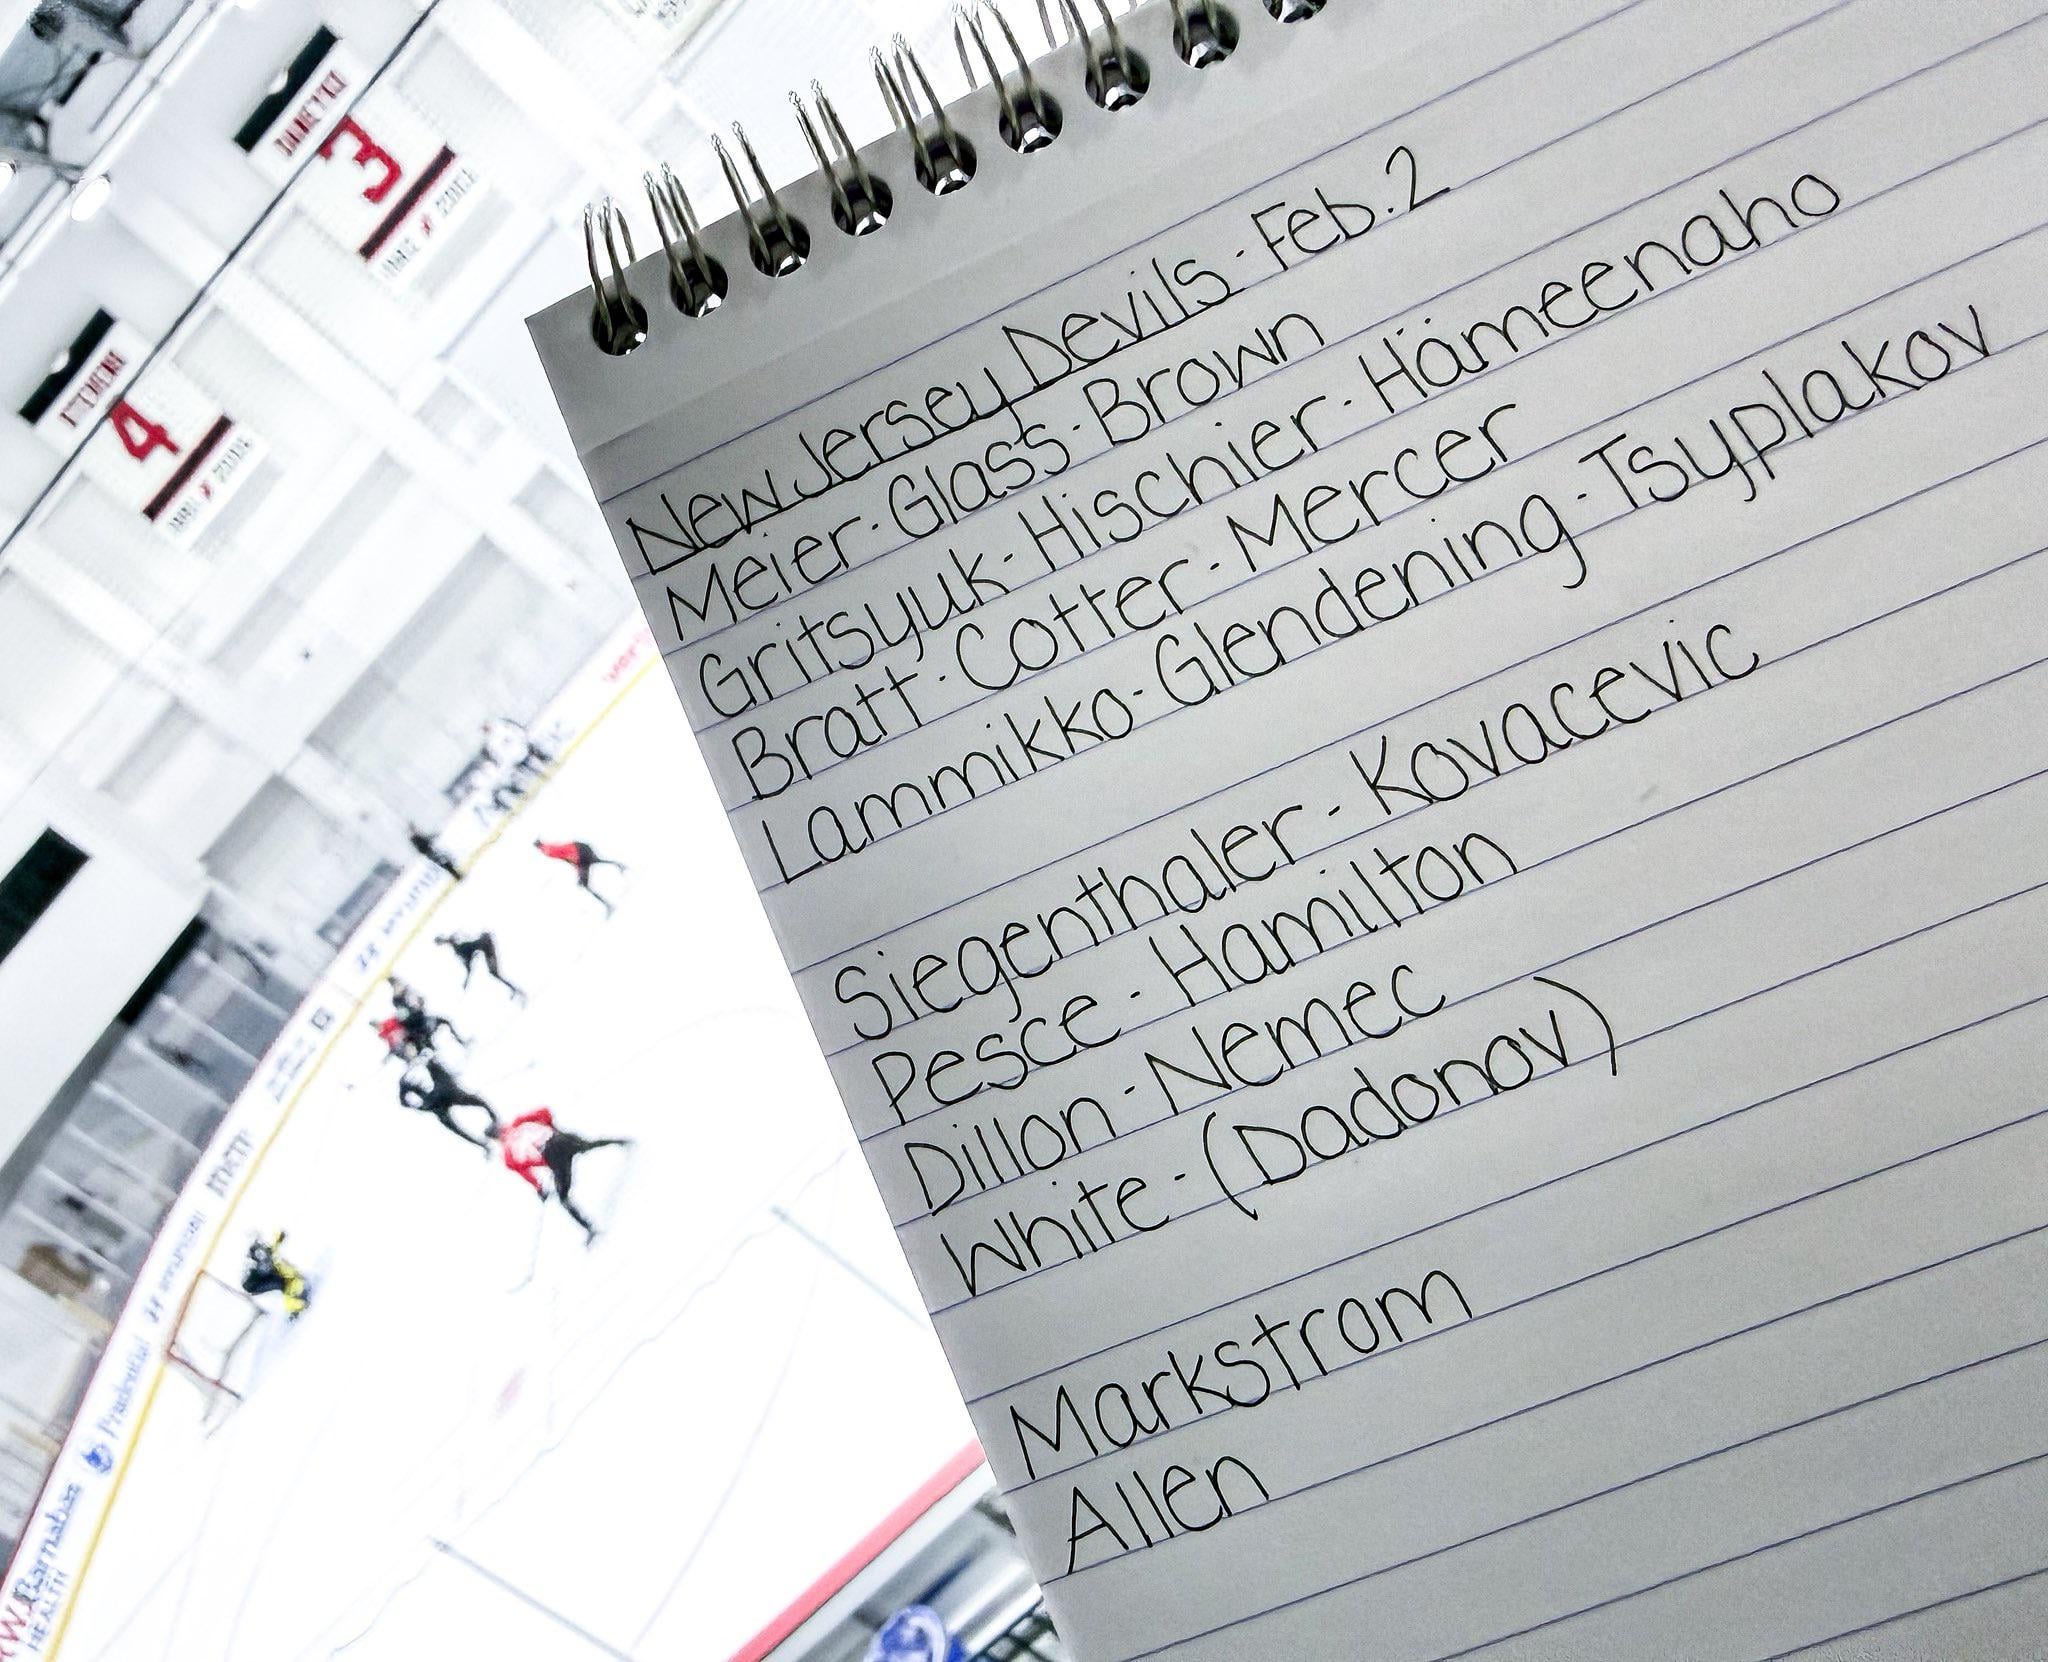 New Jersey Devils - Feb. 2
Meier - Glass - Brown
Gritsyuk - Hischier - Hämeenaho
Bratt - Cotter - Mercer
Lammikko - Glendening - Tsyplakov
Siegenthaler - Kovacevic
Pesce - Hamilton
Dillon - Nemec
White - (Dadonov)
Markstrom
Allen
3
4
Prudential
RWJBarnabas
HEALTH